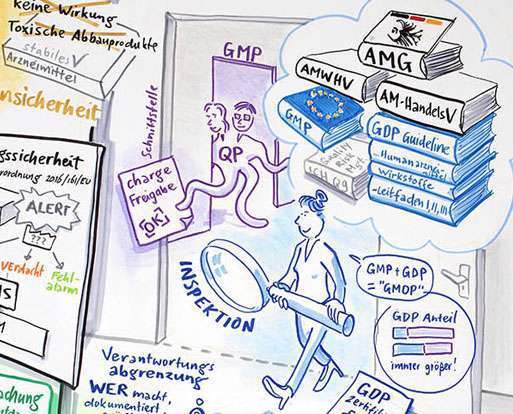 keine Wirkung
Toxische Abbauprodukte
stabiles
Arzneimittel
nsicherheit
gssicherheit
ordnung 2016/161/EU
ALERT
???
Verdacht
Fehl-
alarm
IS
M
achung
Schnittstelle
Charge
Freigabe
OK
GMP
QP
INSPEKTION
Verantwortungs
abgrenzung
WER macht,
dokumentiert
AMG
AMWHV
AM-HandelsV
GMP
Quality
Risk
Mgt
ICH Q9
GDP Guideline
-Humanarzneimittel
-Wirkstoffe
-Leitfaden I, II, III
GMP+GDP
= "GMDP"
GDP Anteil
immer größer!
GDP